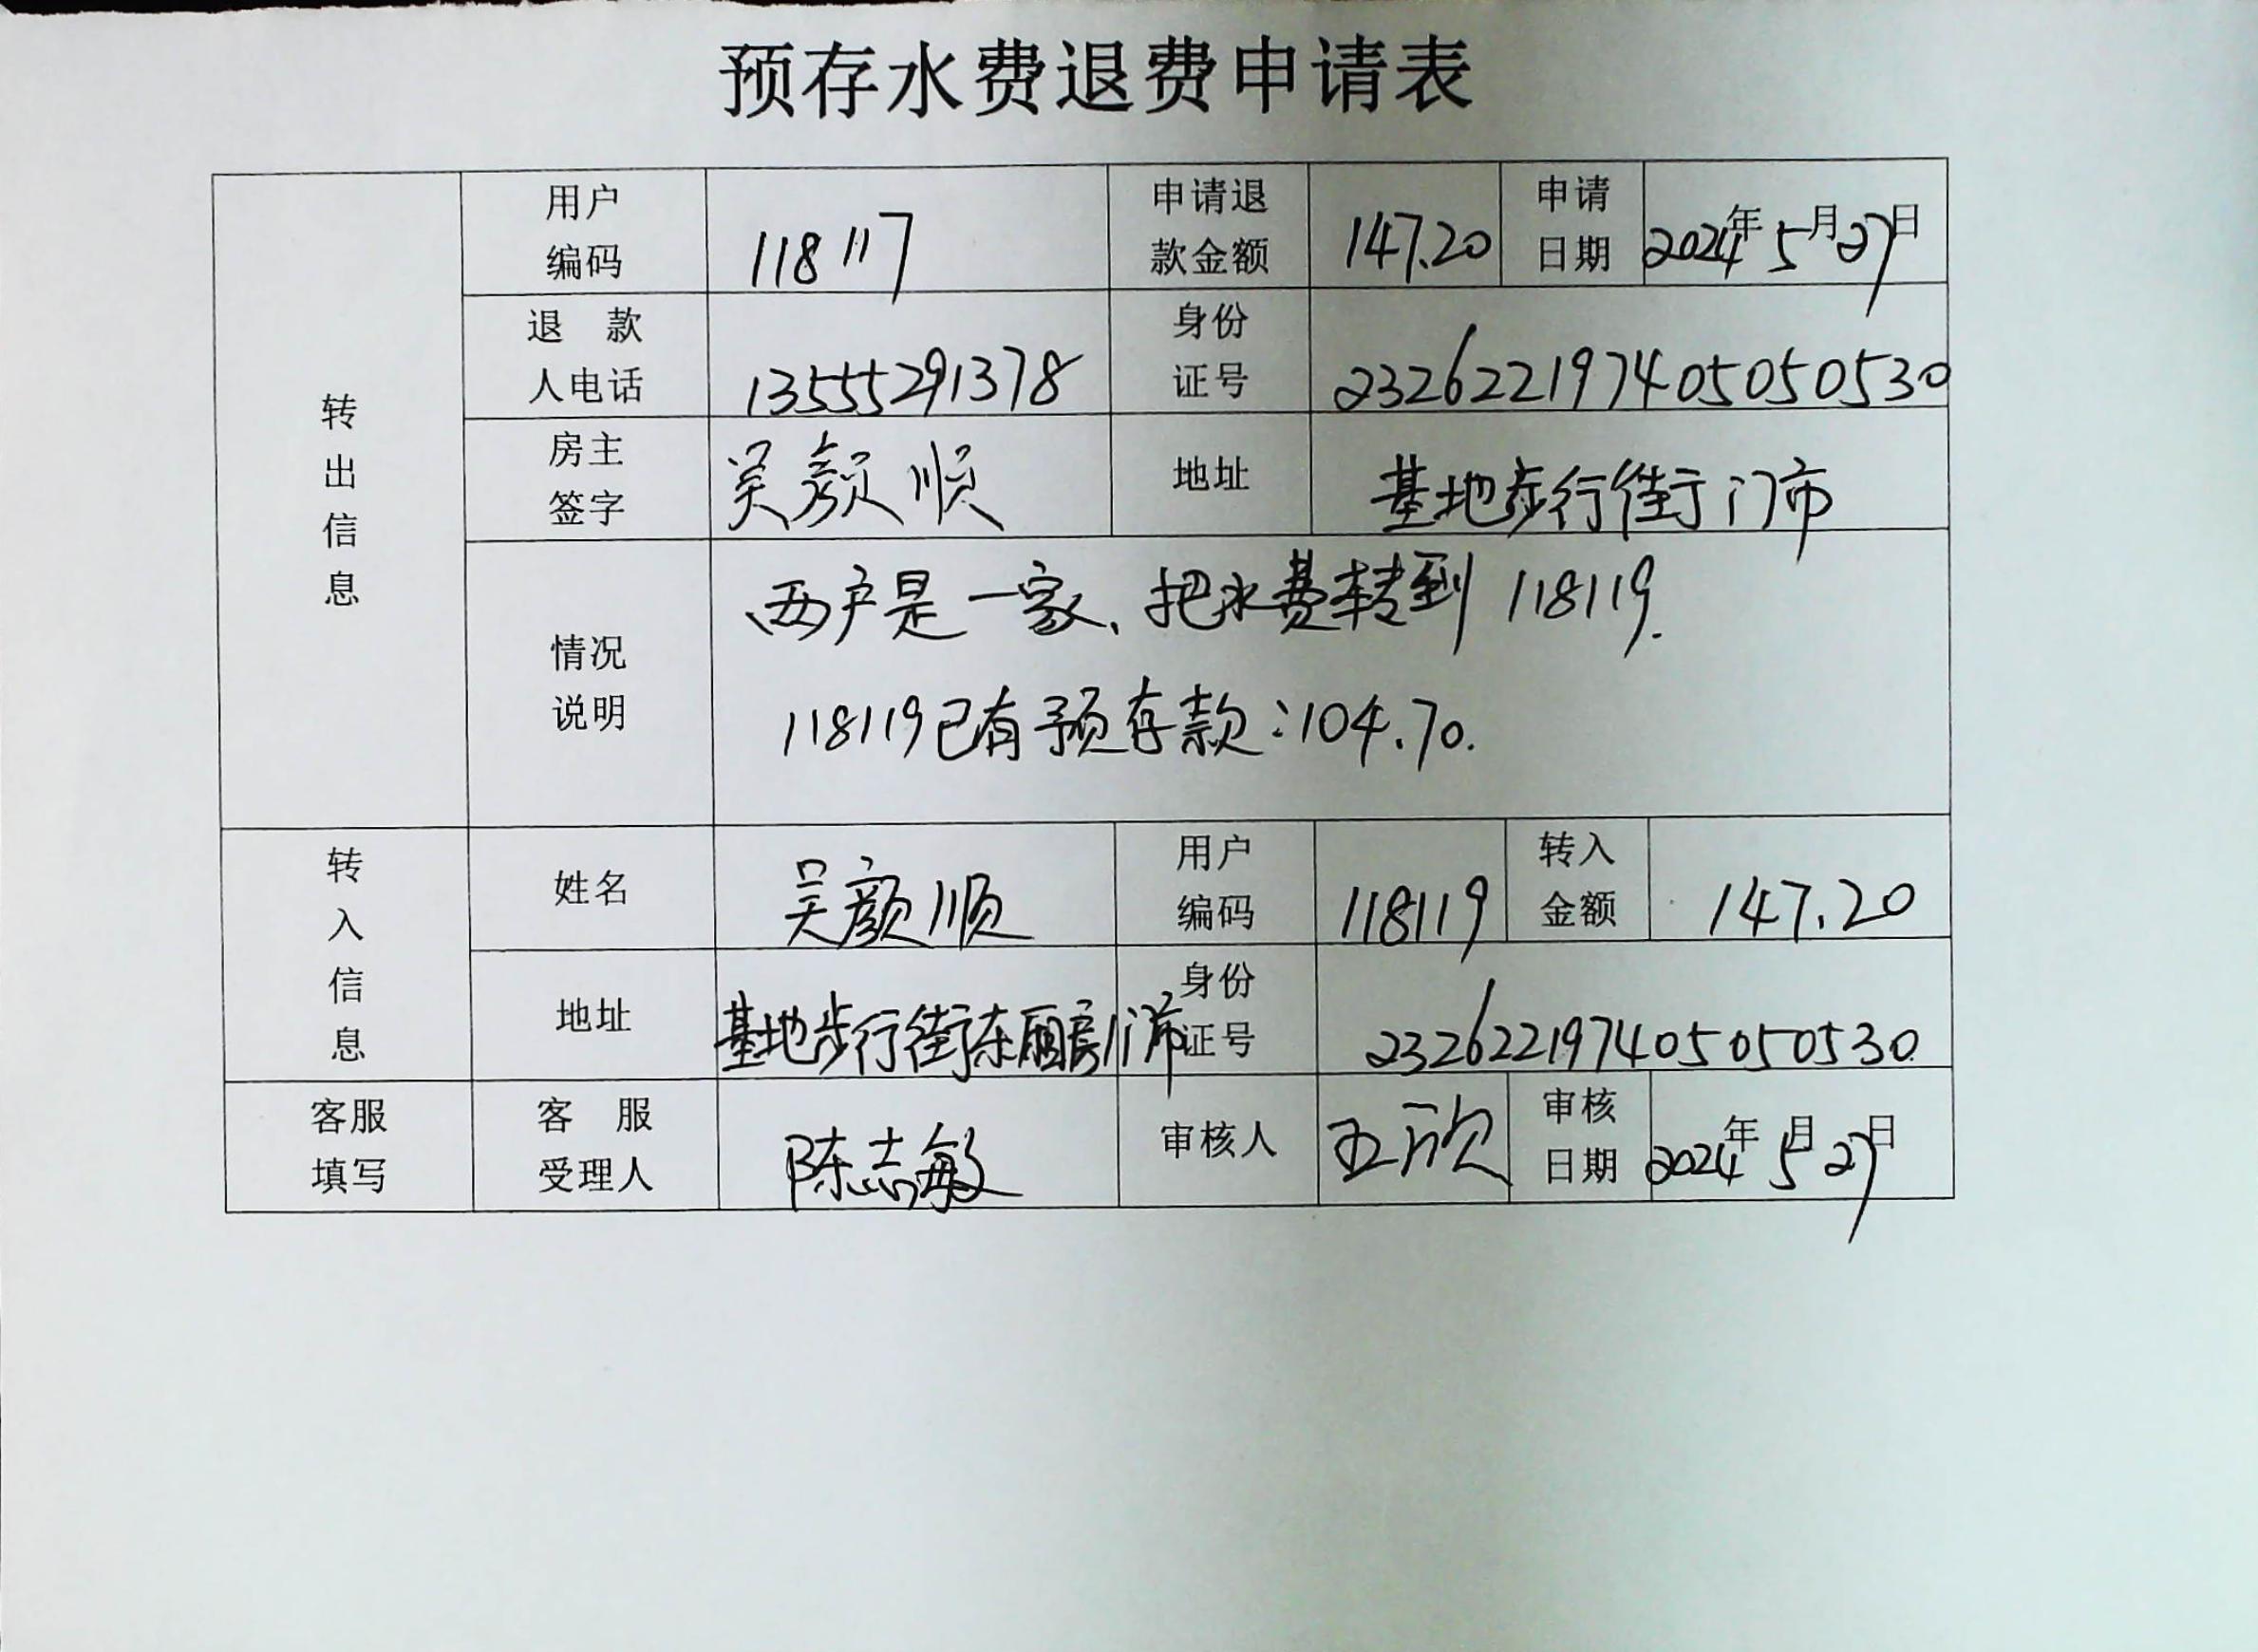 预存水费退费申请表
转出信息
用户编码
118117
申请退款金额
147.20
申请日期
2024年5月27日
退款人电话
13555291378
身份证号
232622197405050530
房主签字
吴颜顺
地址
基地步行街门市
情况说明
两户是一家、把水费转到118119.
118119已有预存款:104.70.
转入信息
姓名
吴颜顺
用户编码
118119
转入金额
147.20
地址
基地步行街东厢房门市
身份证号
232622197405050530
客服填写
客服受理人
陈志敏
审核人
审核日期
2024年5月27日